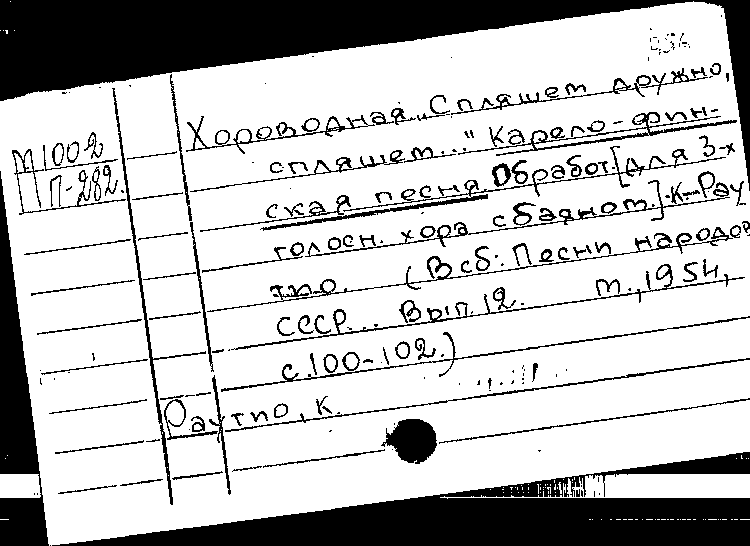 М1002
П-282.
Хороводная „Спляшет дружно,
спляшет..." Карело-фин-
ская песня. Обработ. [для 3-х
голосн. хора с баяном.] К. Рау
тио. (В сб: Песни народов
СССР... Вып. 12. М., 1954,
с. 100-102.)
Раутио, К.